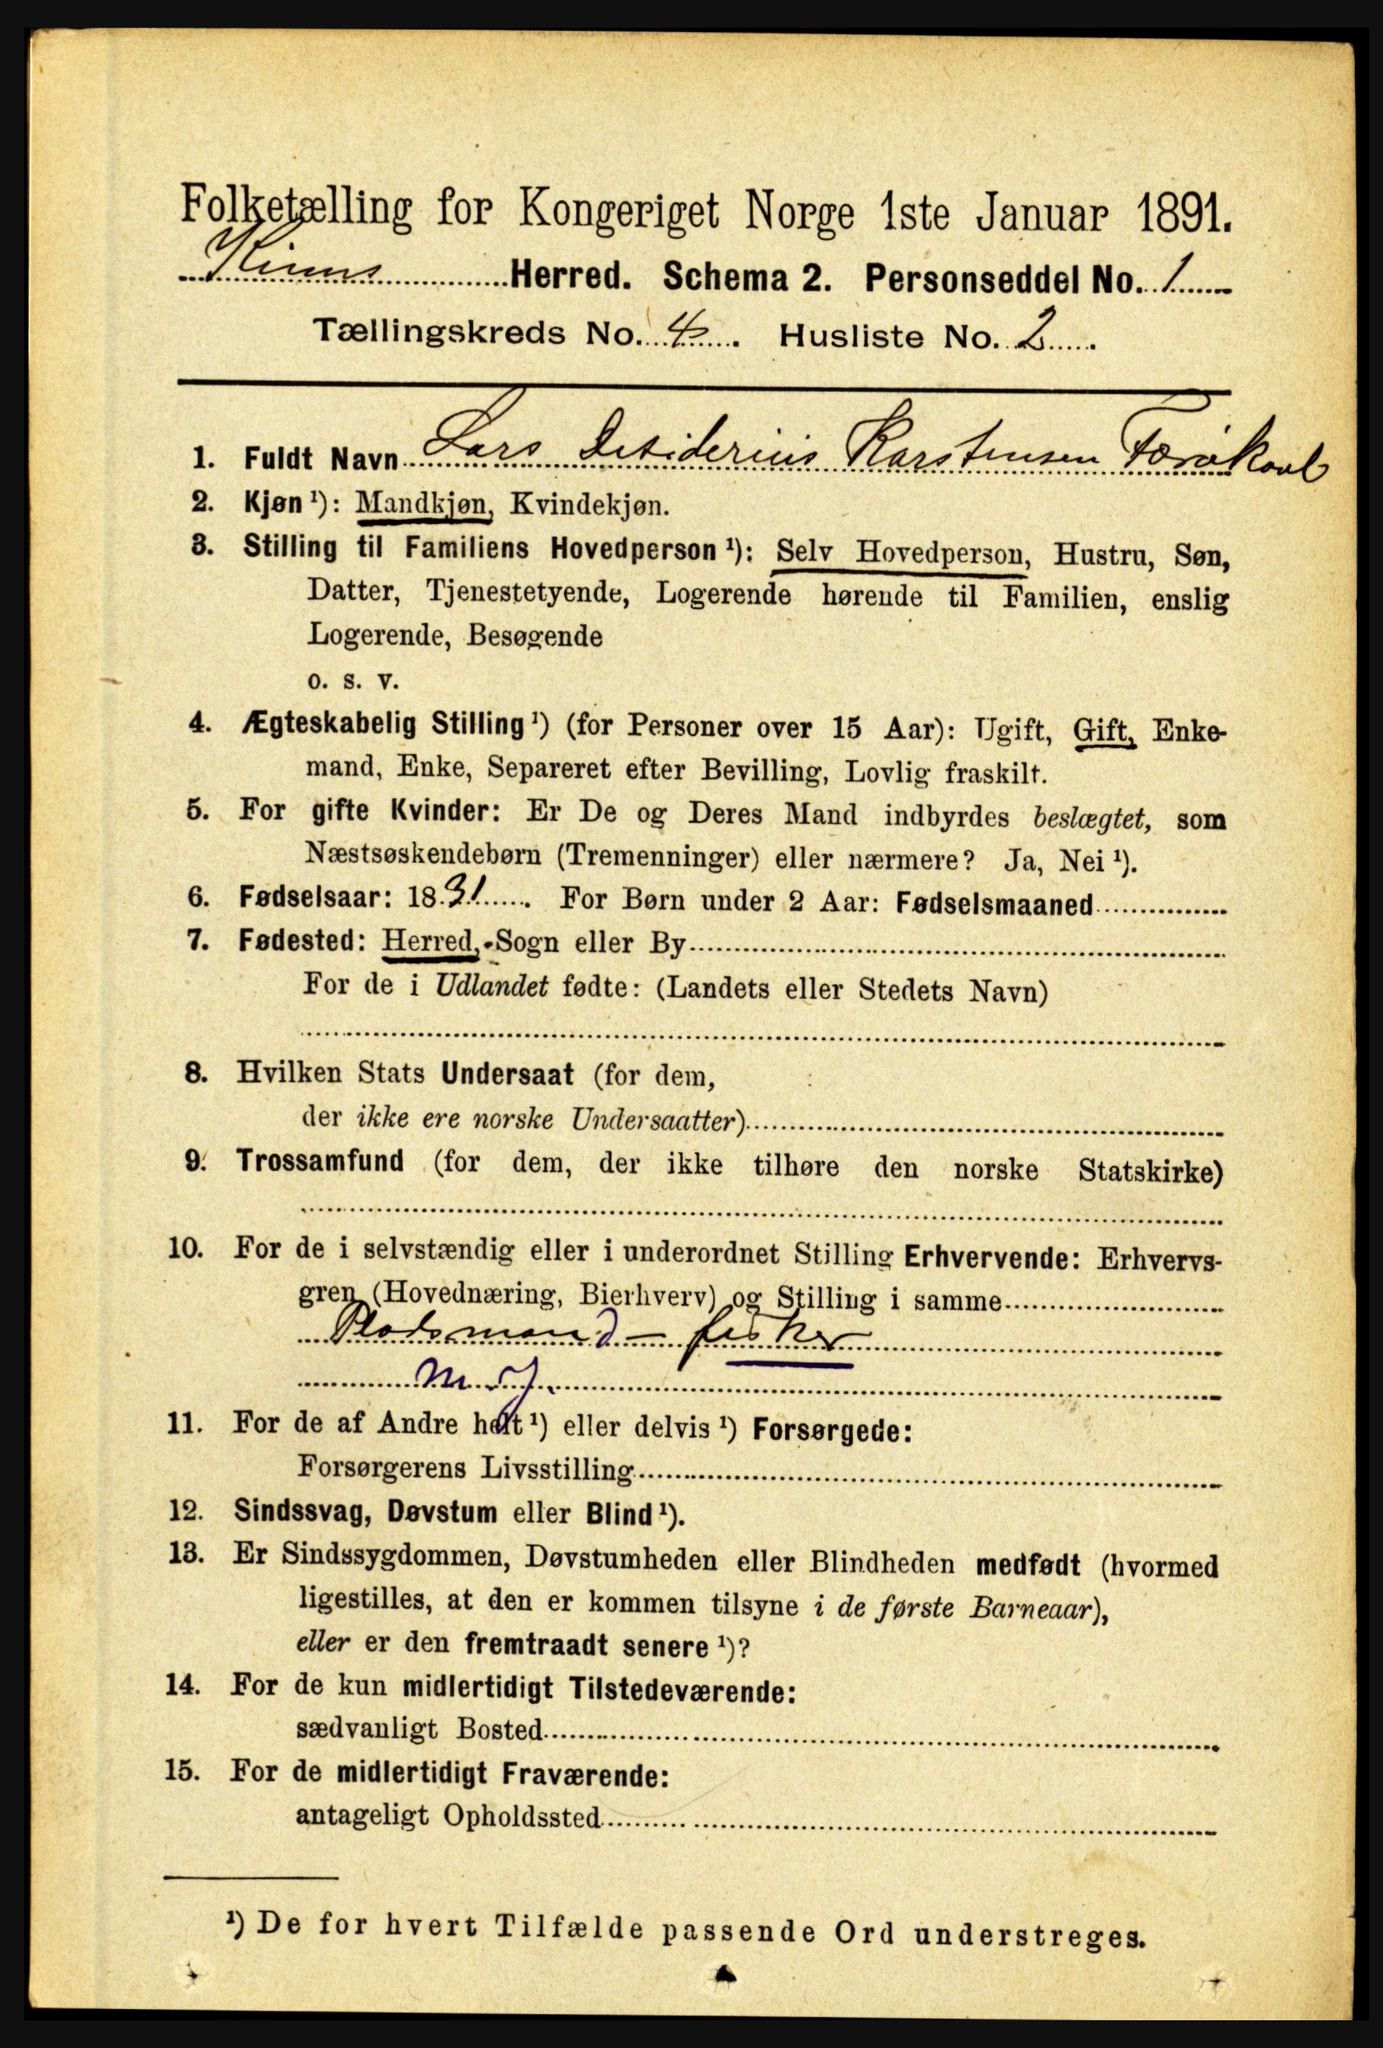 Folketælling for Kongeriget Norge 1ste Januar 1891.
Kinns Herred. Schema 2. Personseddel No. 1
Tællingskreds No. 4. Husliste No. 2.
1. Fuldt Navn Lars Desiderius Karstensen
2. Kjøn ¹): Mandkjøn, Kvindekjøn.
3. Stilling til Familiens Hovedperson ¹): Selv Hovedperson, Hustru, Søn,
Datter, Tjenestetyende, Logerende hørende til Familien, enslig
Logerende, Besøgende
o. s. v.
4. Ægteskabelig Stilling ¹) (for Personer over 15 Aar): Ugift, Gift, Enke-
mand, Enke, Separeret efter Bevilling, Lovlig fraskilt.
5. For gifte Kvinder: Er De og Deres Mand indbyrdes beslægtet, som
Næstsøskendebørn (Tremenninger) eller nærmere? Ja, Nei ¹).
6. Fødselsaar: 1831. For Børn under 2 Aar: Fødselsmaaned
7. Fødested: Herred, Sogn eller By
For de i Udlandet fødte: (Landets eller Stedets Navn)
8. Hvilken Stats Undersaat (for dem,
der ikke ere norske Undersaatter)
9. Trossamfund (for dem, der ikke tilhøre den norske Statskirke)
10. For de i selvstændig eller i underordnet Stilling Erhvervende: Erhvervs-
gren (Hovednæring, Bierhverv) og Stilling i samme
Pladsmand - fisker
m. J.
11. For de af Andre helt ¹) eller delvis ¹) Forsørgede:
Forsørgerens Livsstilling
12. Sindssvag, Døvstum eller Blind ¹).
13. Er Sindssygdommen, Døvstumheden eller Blindheden medfødt (hvormed
ligestilles, at den er kommen tilsyne i de første Barneaar),
eller er den fremtraadt senere ¹)?
14. For de kun midlertidigt Tilstedeværende:
sædvanligt Bosted
15. For de midlertidigt Fraværende:
antageligt Opholdssted
¹) De for hvert Tilfælde passende Ord understreges.